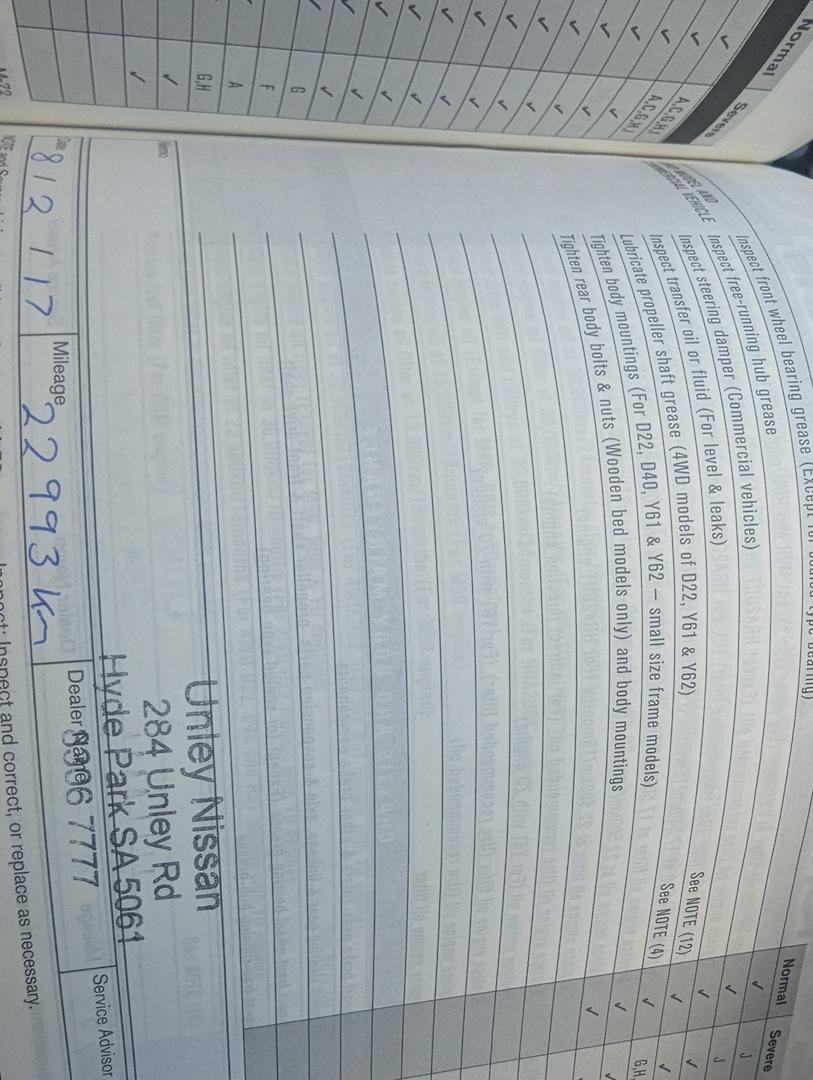 Normal
Severe
A,C,G,H
A,C,G,H
G,H
A
F
G
M-72
MODEL AND
COMMERCIAL VEHICLE
Normal
Severe
Inspect front wheel bearing grease (Except for sealed type bearing)
J
Inspect free-running hub grease
Inspect steering damper (Commercial vehicles)
J
Inspect transfer oil or fluid (For level & leaks)
Inspect transfer shaft grease (4WD models of D22, Y61 & Y62)
See NOTE (12)
Lubricate propeller shaft grease (4WD models of D22, Y61 & Y62)
See NOTE (4)
G,H
Tighten body mountings (For D22, D40, Y61 & Y62 – small size frame models)
Tighten rear body bolts & nuts (Wooden bed models only) and body mountings
Memo
Unley Nissan
284 Unley Rd
Hyde Park SA 5061
8996 7777
Date
8/2/17
Mileage
22993 km
Dealer Name
Service Advisor
Inspect: Inspect and correct, or replace as necessary.